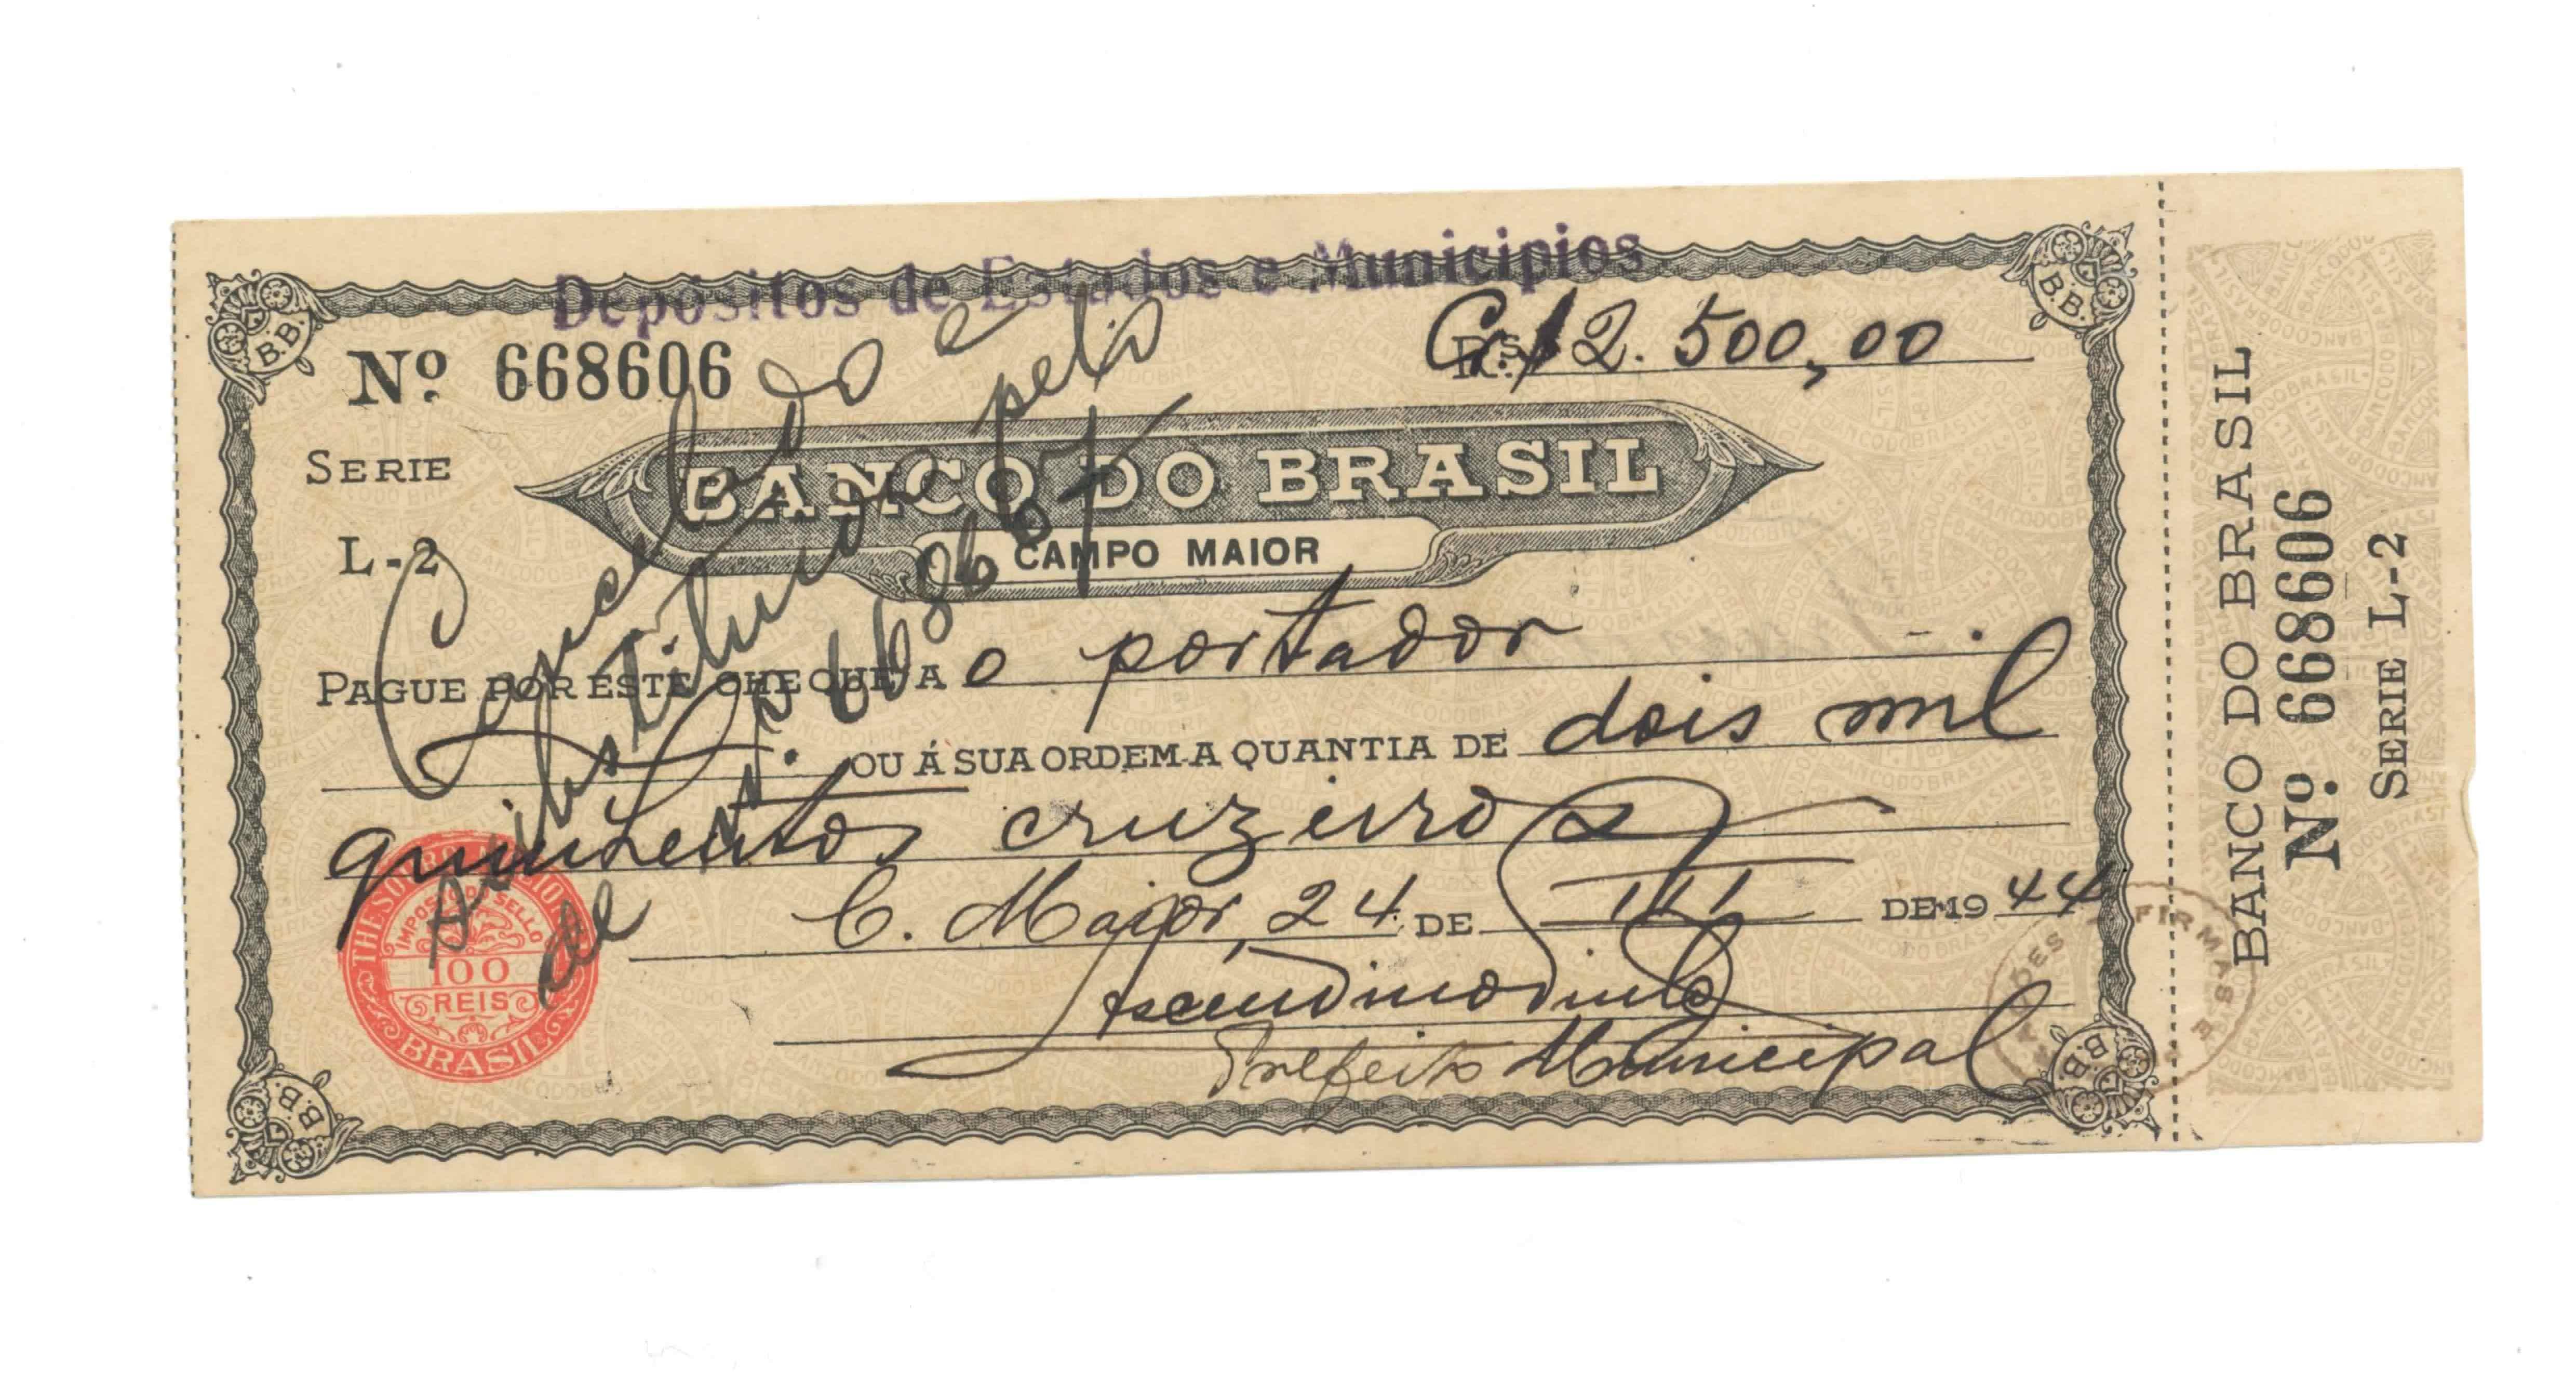 Depósitos de Estados e Municipios
Nº 668606
Rs. Cr$ 2.500,00
SERIE
L-2
BANCO DO BRASIL
CAMPO MAIOR
PAGUE POR ESTE CHEQUE A o portador
OU Á SUA ORDEM A QUANTIA DE dois mil
quinhentos cruzeiros
C. Maior, 24 DE III DE 1944
Prefeito Municipal
Cancelado e
substituido pelo
de nº 668607
THESOURO NACIONAL
IMPOSTO DO SELLO
100
REIS
BRASIL
B.B.
B.B.
B.B.
B.B.
FIRMAS E
BANCO DO BRASIL
Nº 668606
SERIE L-2